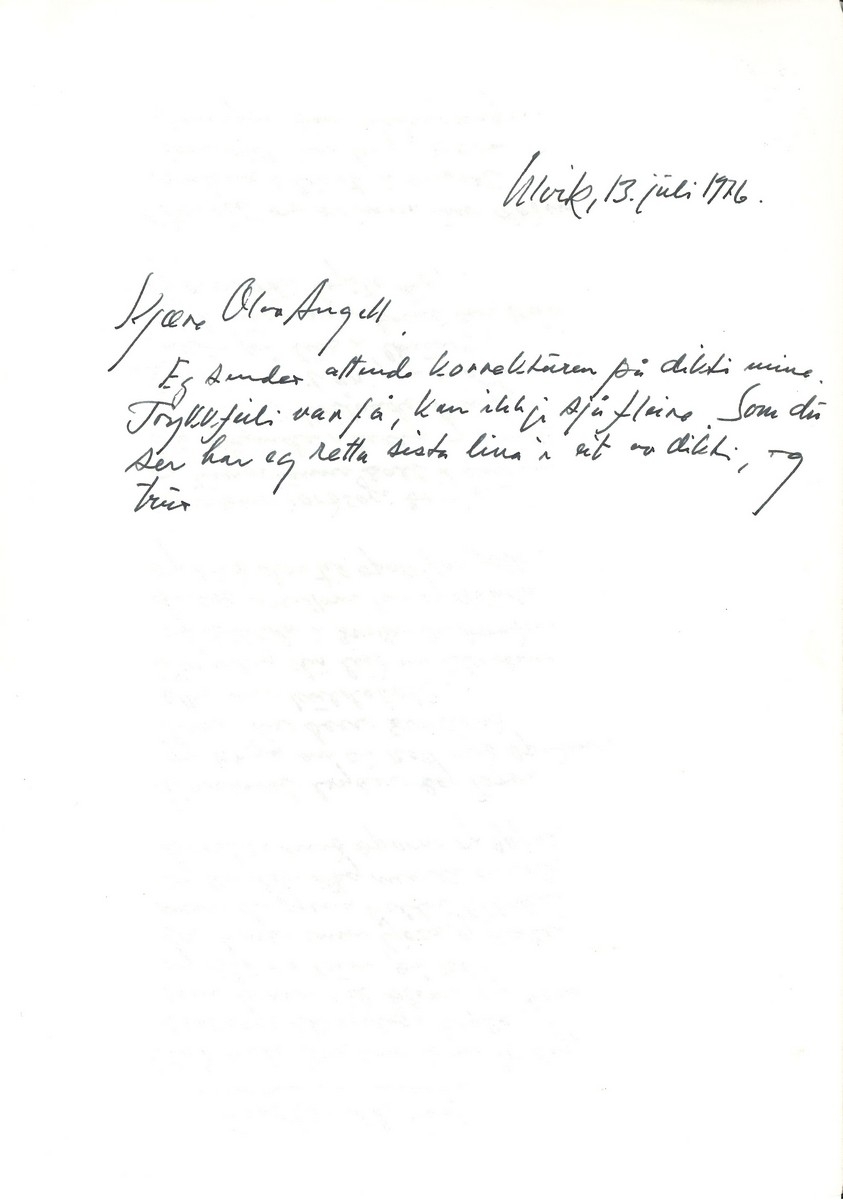 Ulvik, 13. juli 1976.
Kjære Olav Angell,
Eg sender attende korrekturen på dikti mine.
Trykkfeili var få, kan ikkje sjå fleire. Som du
ser har eg retta sista lina i eit av dikti, og
trur